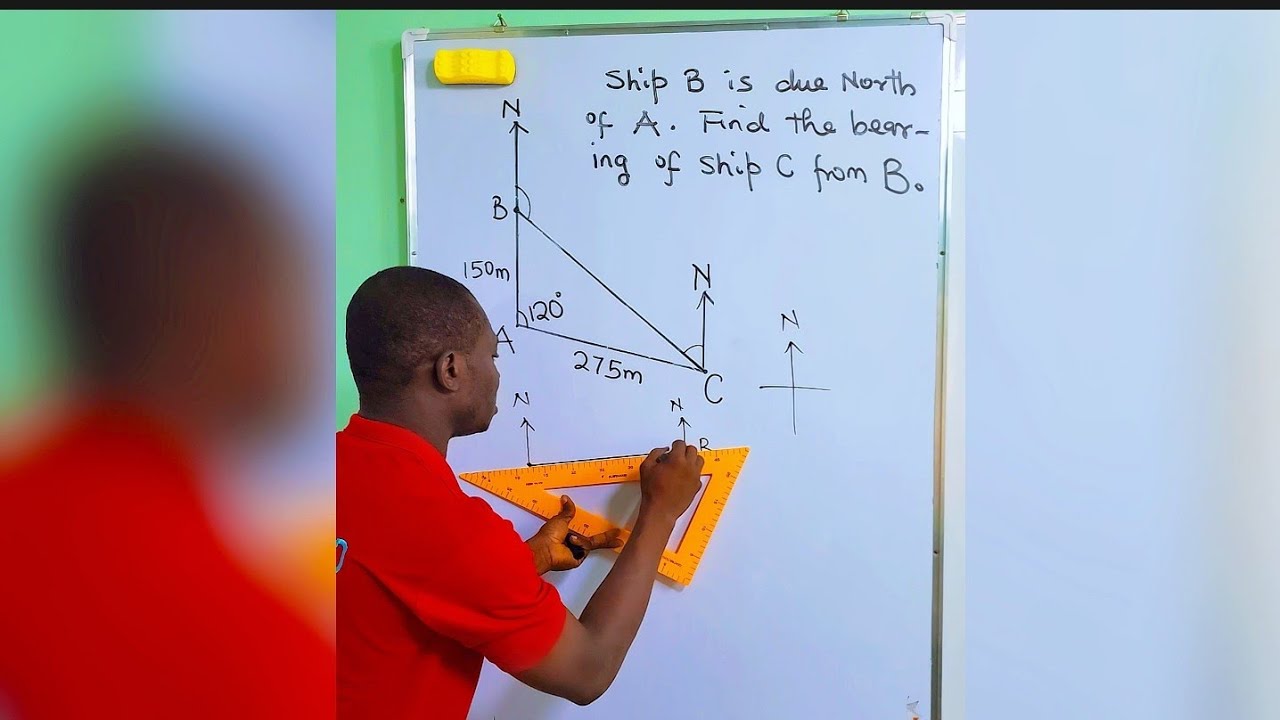 Ship B is due North
of A. Find the bear-
ing of Ship C from B.
N
B
150m
120°
A
275m
N
C
N
N
N
R